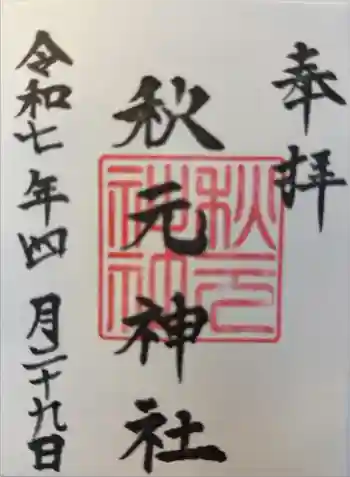 奉拝
秋元神社
秋元
神社
令和七年四月二十九日